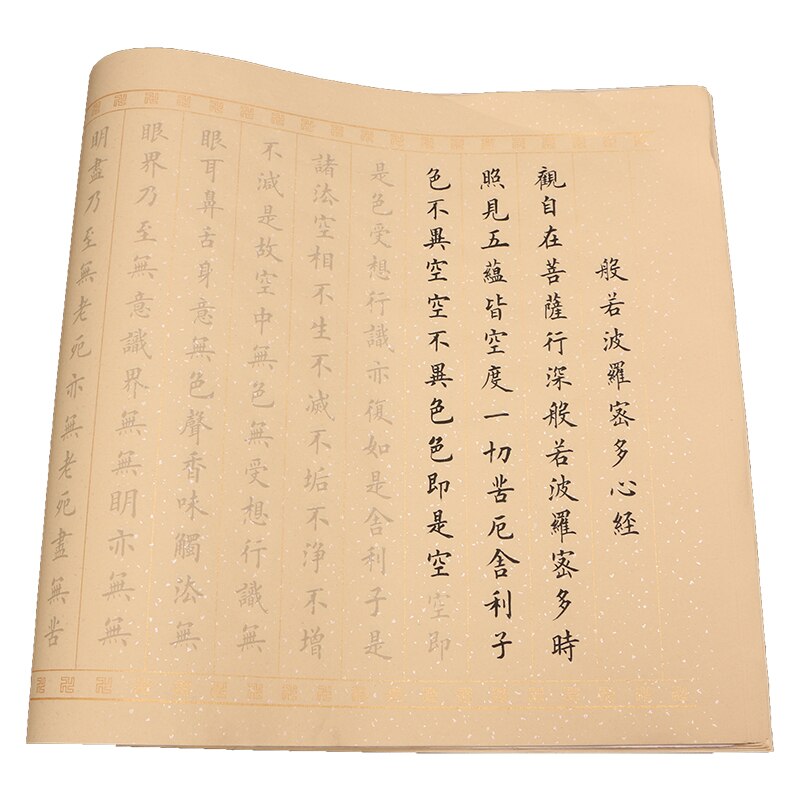 般若波羅密多心経
觀自在菩薩行深般若波羅密多時
照見五蘊皆空度一切苦厄舍利子
色不異空空不異色色即是空空即
是色受想行識亦復如是舍利子是
諸法空相不生不滅不垢不淨不增
不減是故空中無色無受想行識無
眼耳鼻舌身意無色聲香味觸法無
眼界乃至無意識界無無明亦無無
明盡乃至無老死亦無老死盡無苦